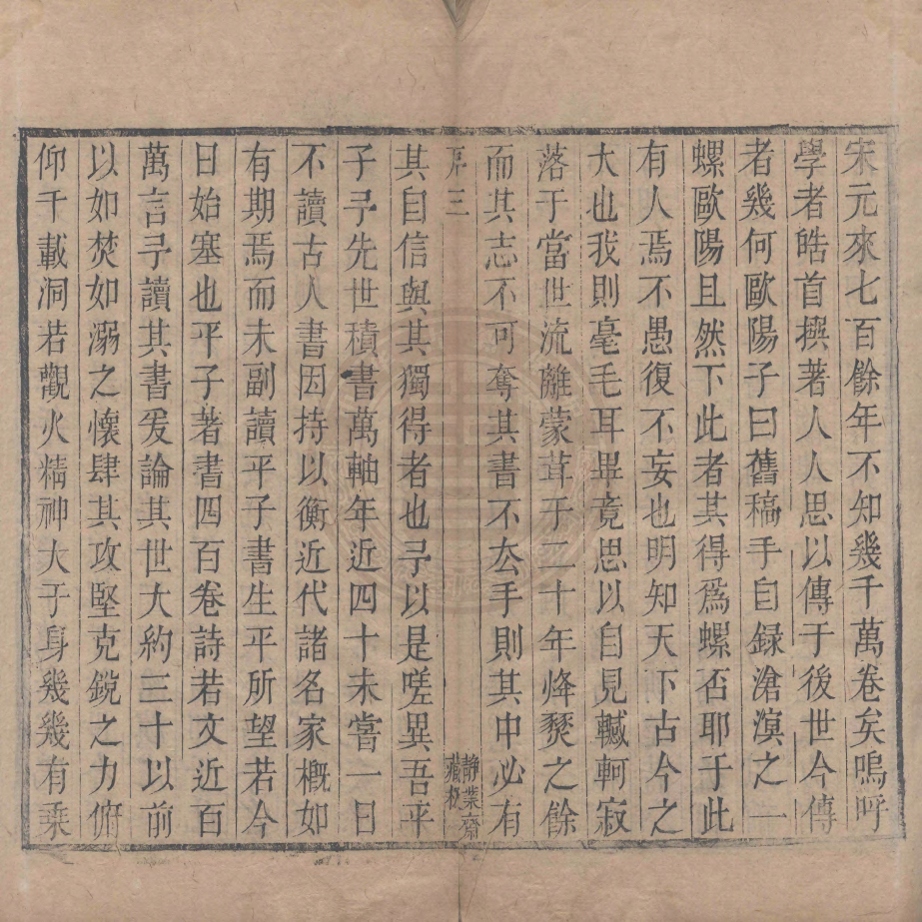 宋元來七百餘年不知幾千萬卷矣嗚呼
學者皓首撰著人人思以傳于後世今傳
者幾何歐陽子曰舊稿手自録滄溟之一
螺歐陽且然下此者其得爲螺否耶于此
有人焉不愚復不妄也明知天下古今之
大也我則毫毛耳畢竟思以自見轗軻寂
落于當世流離蒙茸于二十年烽燹之餘
而其志不可奪其書不厺手則其中必有
序三
靜業齋
藏板
其自信與其獨得者也予以是嗟異吾平
子予先世積書萬軸年近四十未嘗一日
不讀古人書因持以衡近代諸名家概如
有期焉而未副讀平子書生平所望若今
日始塞也平子著書四百卷詩若文近百
萬言予讀其書爰論其世大約三十以前
以如焚如溺之懷肆其攻堅克銳之力俯
仰千載洞若觀火精神大于身幾幾有乘